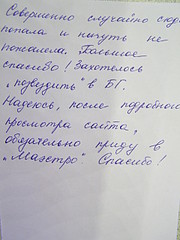 Совершенно случайно сюда
попала и ничуть не
пожалела. Большое
спасибо! Захотелось
„позвездить" в БГ.
Надеюсь, после подробного
просмотра сайта,
обязательно приду в
„Маэстро" Спасибо!